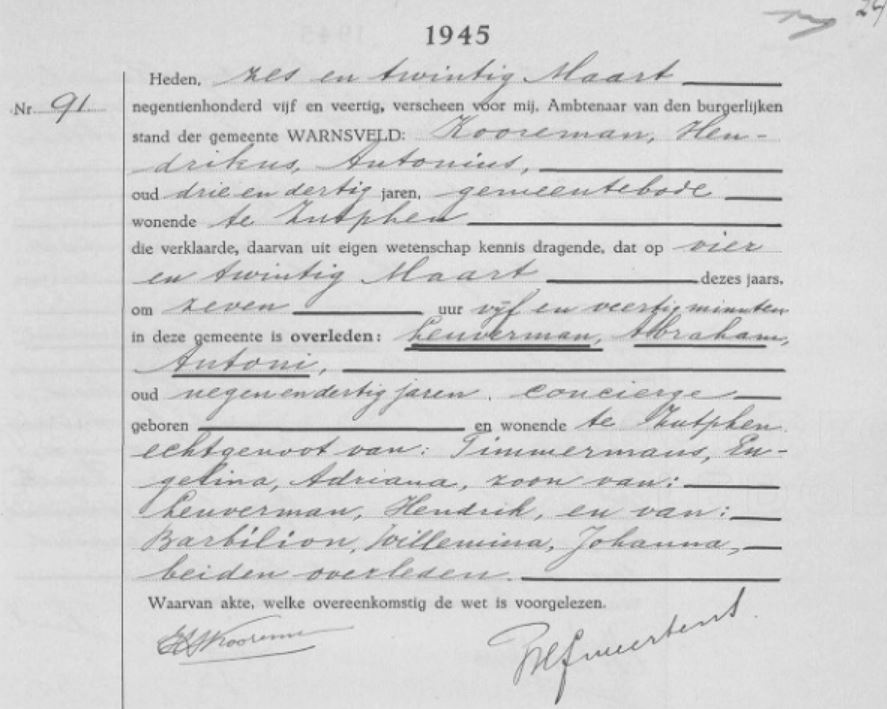 24
1945
Heden, zes en twintig Maart
Nr. 91
negentienhonderd vijf en veertig, verscheen voor mij, Ambtenaar van den burgerlijken
stand der gemeente WARNSVELD: Kooreman, Hen-
drikus, Antonius,
oud drie en dertig jaren, gemeentebode
wonende te Zutphen
die verklaarde, daarvan uit eigen wetenschap kennis dragende, dat op vier
en twintig Maart dezes jaars,
om zeven uur vijf en veertig minuten
in deze gemeente is overleden: Leuverman, Abraham,
Antoni,
oud negen en dertig jaren, concierge
geboren en wonende te Zutphen
echtgenoot van: Timmermans, En-
gelina, Adriana, zoon van:
Leuverman, Hendrik, en van:
Barbilion, Willemina, Johanna,
beiden overleden.
Waarvan akte, welke overeenkomstig de wet is voorgelezen.